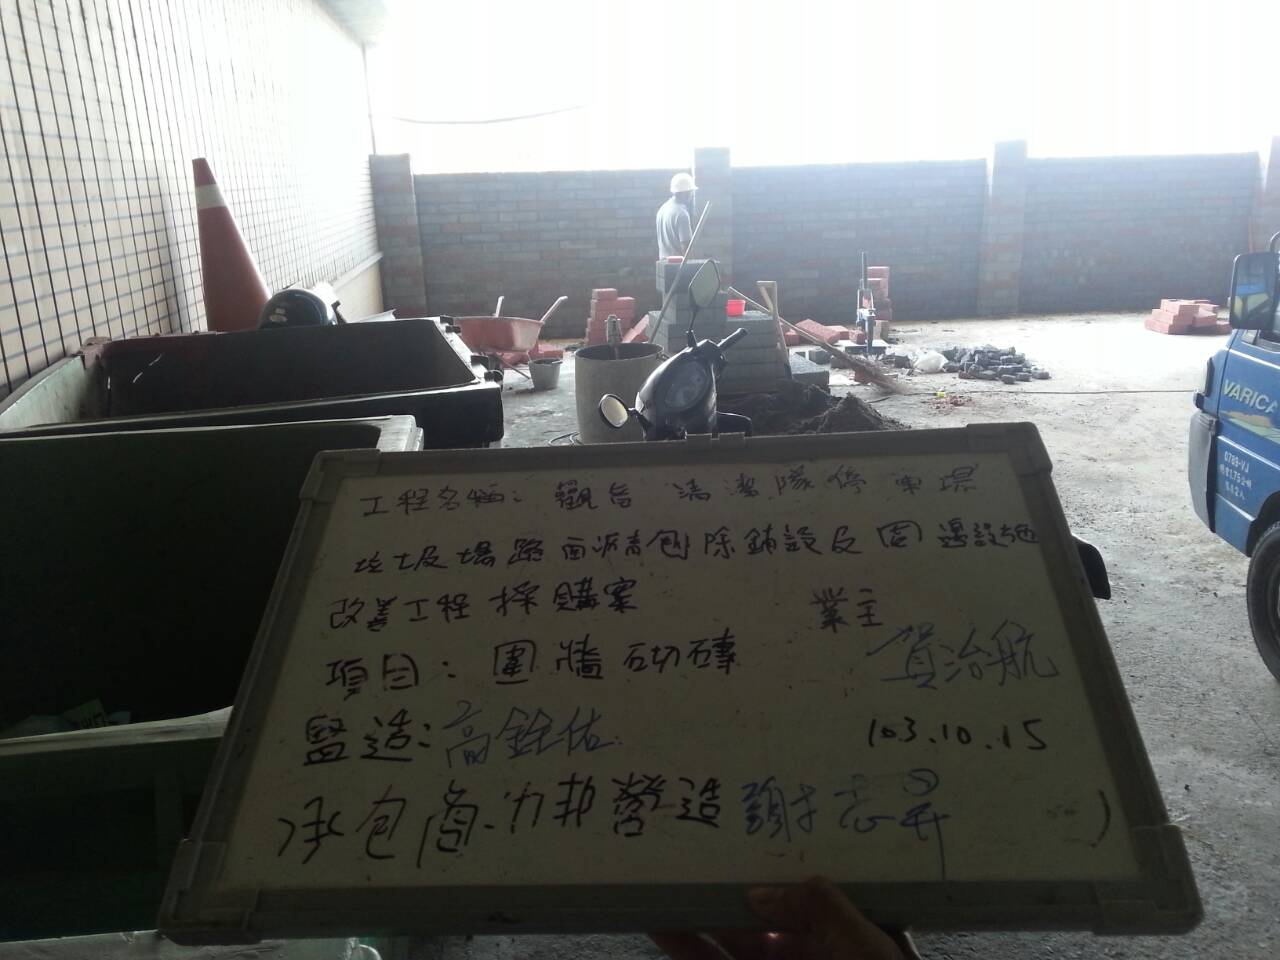 工程名稱：觀音 清潔隊停車場
垃圾場路面瀝青刨除鋪設及周邊設施
改善工程採購案 業主
項目：圍牆砌磚 賀治航
監造：高銓佑 103.10.15
承包商：力邦營造 謝志昇
VARICA
0789-VJ